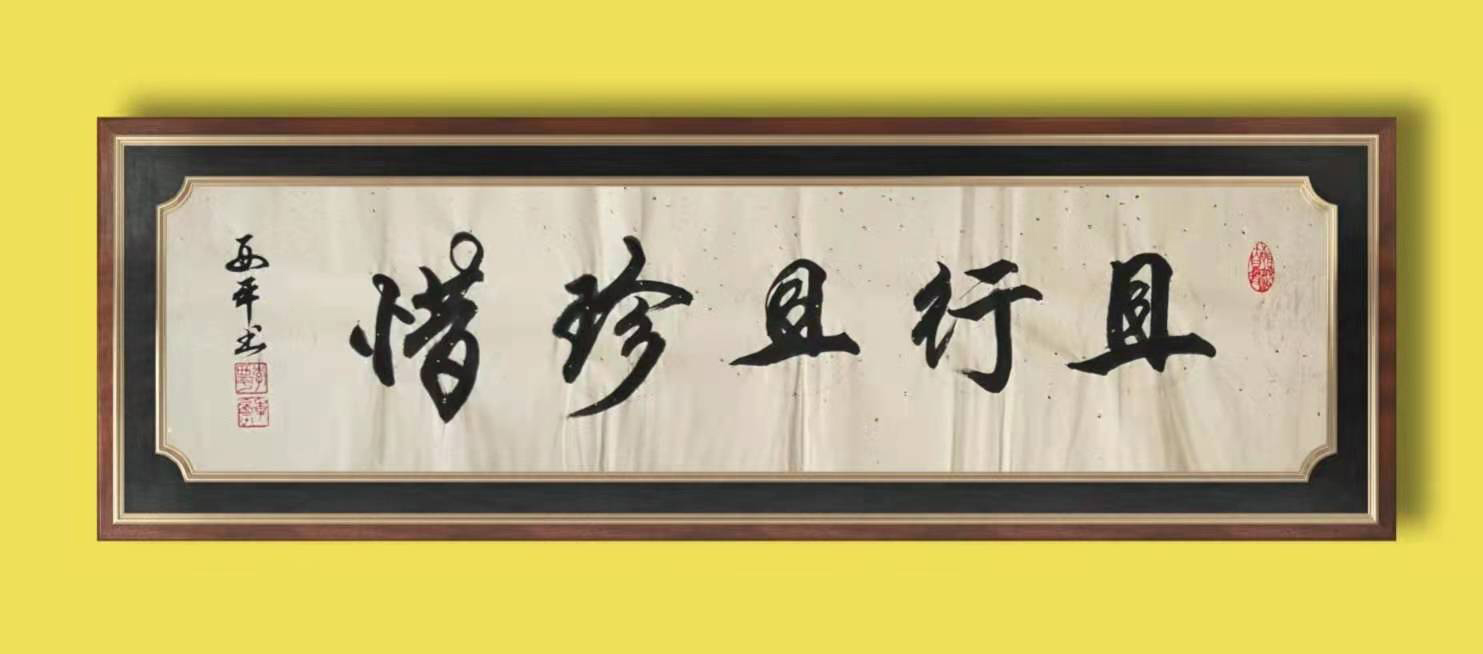 且行且珍惜
西平书